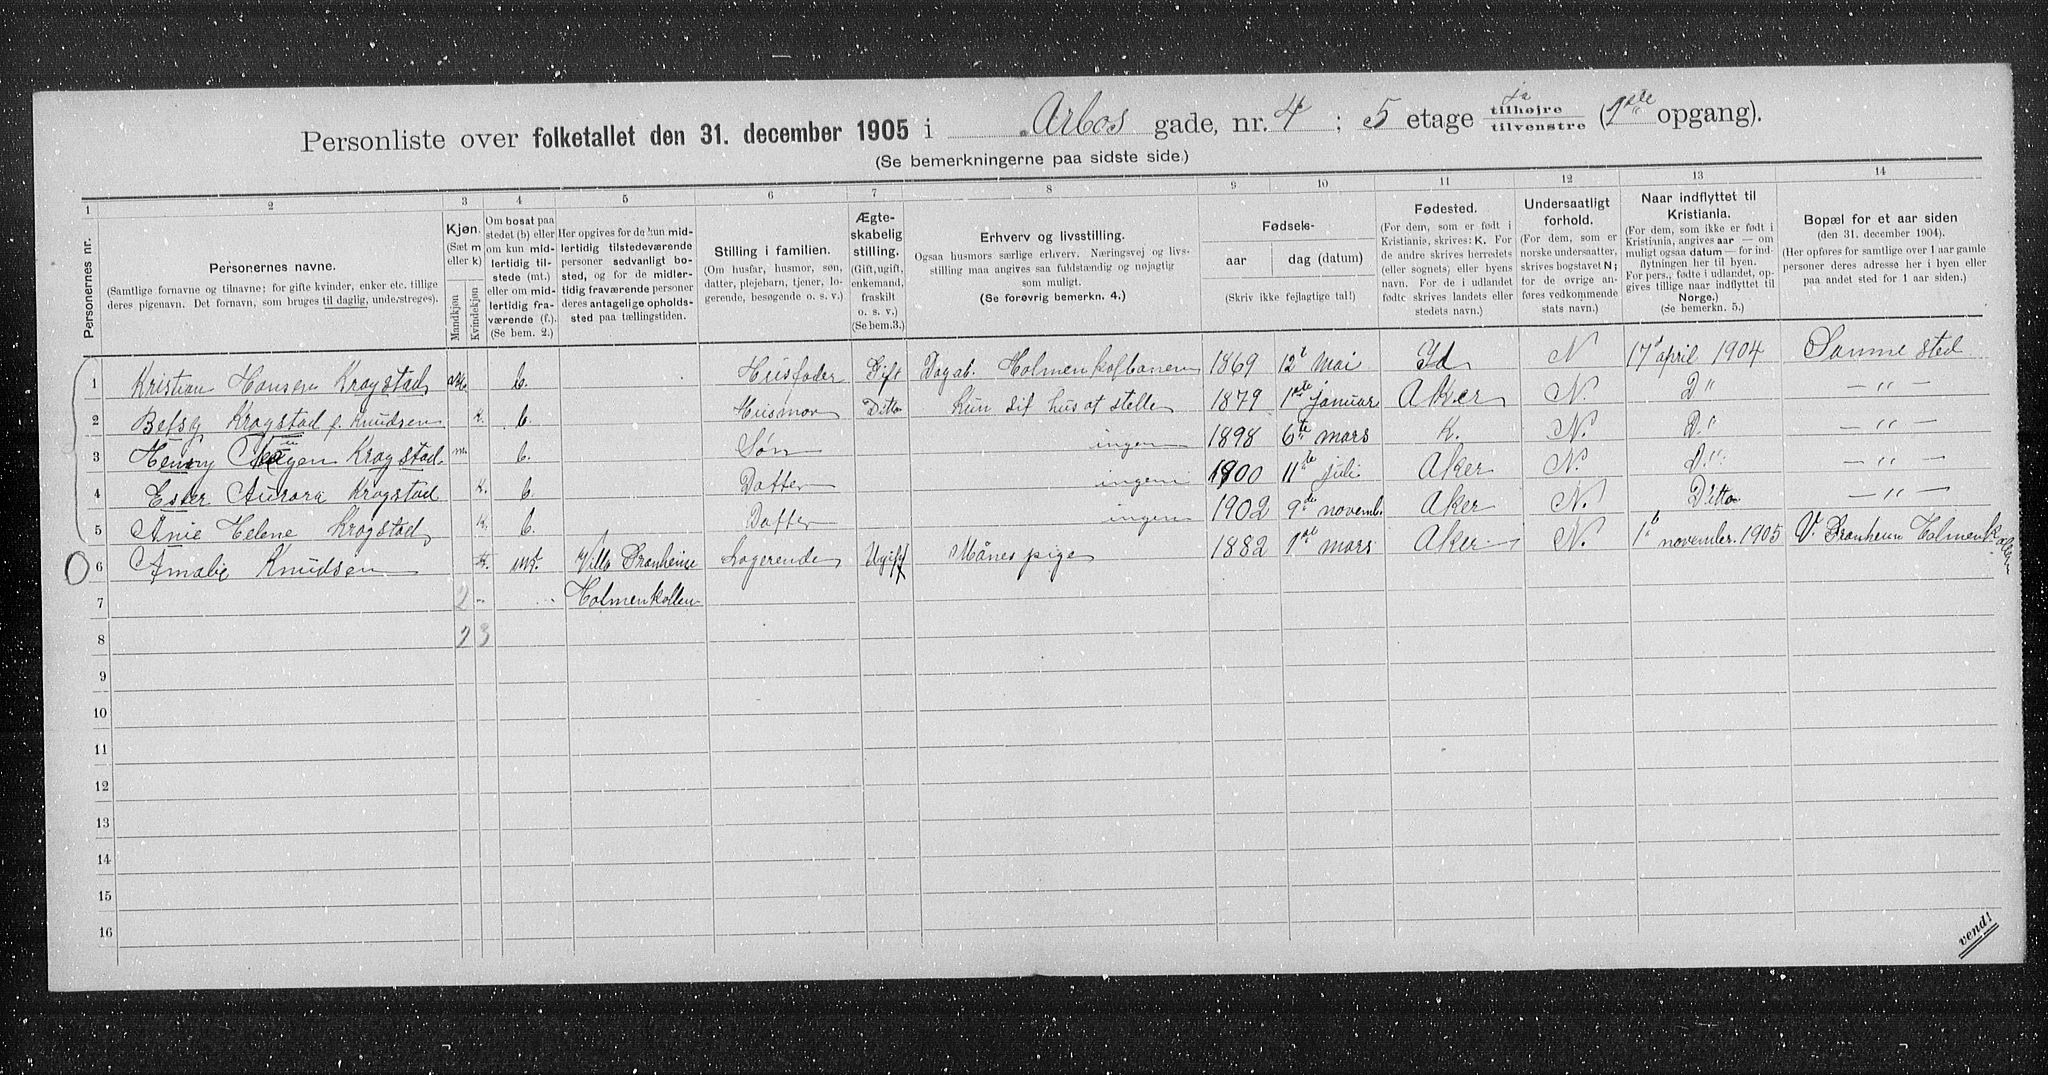 Personliste over folketallet den 31. december 1905 i Arbos gade, nr. 4; 5 etage tilhøjre tilvenstre (1ste opgang).
(Se bemerkningerne paa sidste side.)
1 2 3 4 5 6 7 8 9 10 11 12 13 14
Personernes nr.
Personernes navne.
(Samtlige fornavne og tilnavne; for gifte kvinder, enker etc. tillige deres pigenavn. Det fornavn, som bruges til daglig, understreges).
Kjøn.
(Sæt m eller k)
Mandkjøn
Kvindekjøn
Om bosat paa stedet (b) eller om kun midlertidig tilstede (mt.) eller om midlertidig fraværende (f.). (Se bem. 2.)
Her opgives for de kun midlertidig tilstedeværende personer sedvanligt bosted, og for de midlertidig fraværende personer deres antagelige opholdssted paa tællingstiden.
Stilling i familien.
(Om husfar, husmor, søn, datter, plejebarn, tjener, logerende, besøgende o. s. v.)
Ægteskabelig stilling.
(Gift, ugift, enkemand, fraskilt o. s. v.) (Se bem. 3.)
Erhverv og livsstilling.
Ogsaa husmors særlige erhverv. Næringsvej og livsstilling maa angives saa fuldstændig og nøjagtig som muligt.
(Se forøvrig bemerkn. 4.)
Fødsels-
aar
dag (datum)
(Skriv ikke fejlagtige tal!)
Fødested.
(For dem, som er født i Kristiania, skrives: K. For de andre skrives herredets (eller sognets) eller byens navn. For de i udlandet fødte skrives landets eller stedets navn.)
Undersaatligt forhold.
(For dem, som er norske undersaatter, skrives bogstavet N; for de øvrige anføres vedkommende stats navn.)
Naar indflyttet til Kristiania.
(For dem, som ikke er født i Kristiania, angives aar — om muligt ogsaa datum — for indflytningen her til byen. For pers., fødte i udlandet, opgives tillige naar indflyttet til Norge.)
(Se bemerkn. 5.)
Bopæl for et aar siden
(den 31. december 1904).
(Her opføres for samtlige over 1 aar gamle personer deres adresse her i byen eller paa andet sted for 1 aar siden.)
1 Kristian Hansen Kragstad b. Husfader Gift Holmenkolbanen 1869 12te Mai Id N 17de april 1904 Samme sted
2 Betsy Kragstad f. Knudsen k. b. Husmor Ditto kun sit hus at stelle 1879 1ste januar Aker N. D" — " —
3 Henry Kragstad m. b. Søn ingen 1898 6te mars K. N. D" — " —
4 Ester Aurora Kragstad k. b. Datter ingen 1900 11te juli Aker N. D" — " —
5 Anie Helene Kragstad k. b. Datter ingen 1902 9de novemb. Aker N. Ditto — " —
6 Amalie Knudsen k. mt. Villa Logerende Ugift 1882 1ste mars Aker N. 1te november 1905 V. Holmenkollen
7 2 - Holmenkollen
8 2 3
9
10
11
12
13
14
15
16
vend!